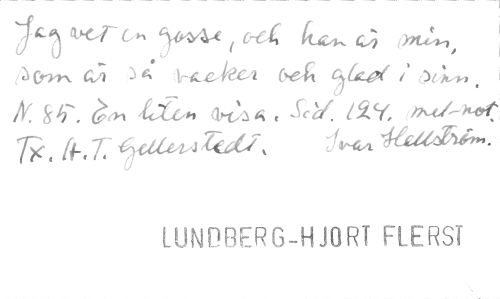 Jag vet en gosse, och han är min,
som är så vacker och glad i sinn.
N. 85. En liten visa. Sid. 124. mel-not.
Tx. A. T. Gellerstedt. Ivar Hellström.
LUNDBERG-HJORT FLERST